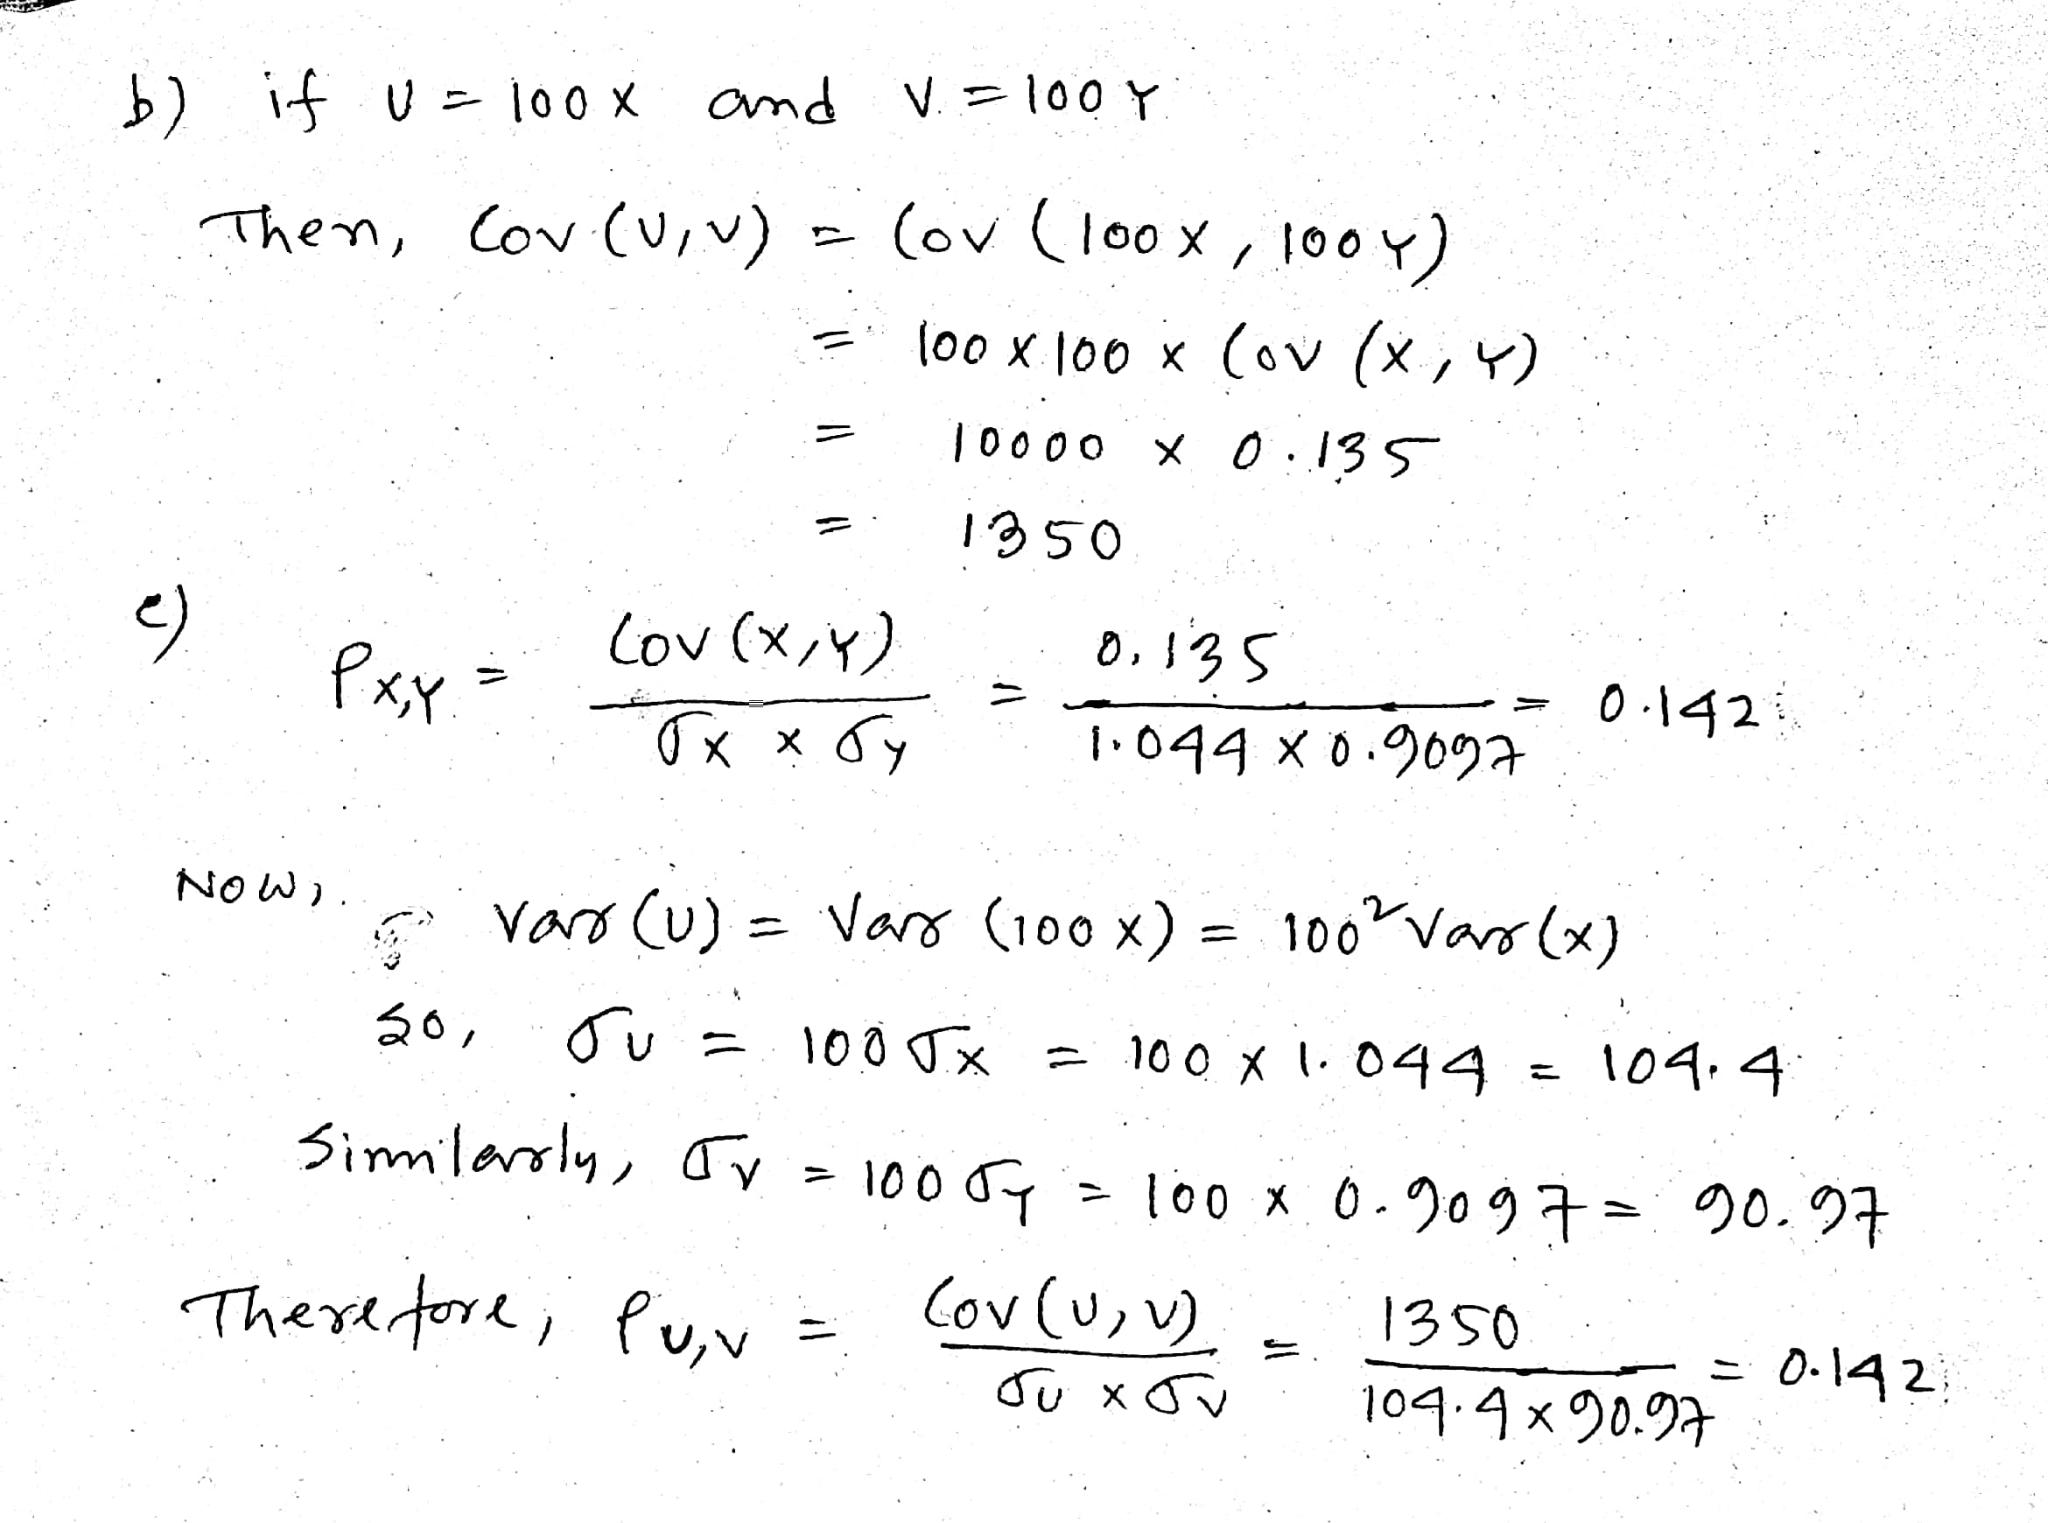 b) if U = 100X and V = 100Y
Then, Cov(U,V) = Cov(100X, 100Y)
= 100 x 100 x Cov(X,Y)
= 10000 x 0.135
= 1350
c)
ρX,Y = Cov(X,Y) / σX x σY = 0.135 / 1.044 x 0.9097 = 0.142
Now,
Var(U) = Var(100X) = 100² Var(X)
So, σU = 100 σX = 100 x 1.044 = 104.4
Similarly, σV = 100 σY = 100 x 0.9097 = 90.97
Therefore, ρU,V = Cov(U,V) / σU x σV = 1350 / 104.4 x 90.97 = 0.142